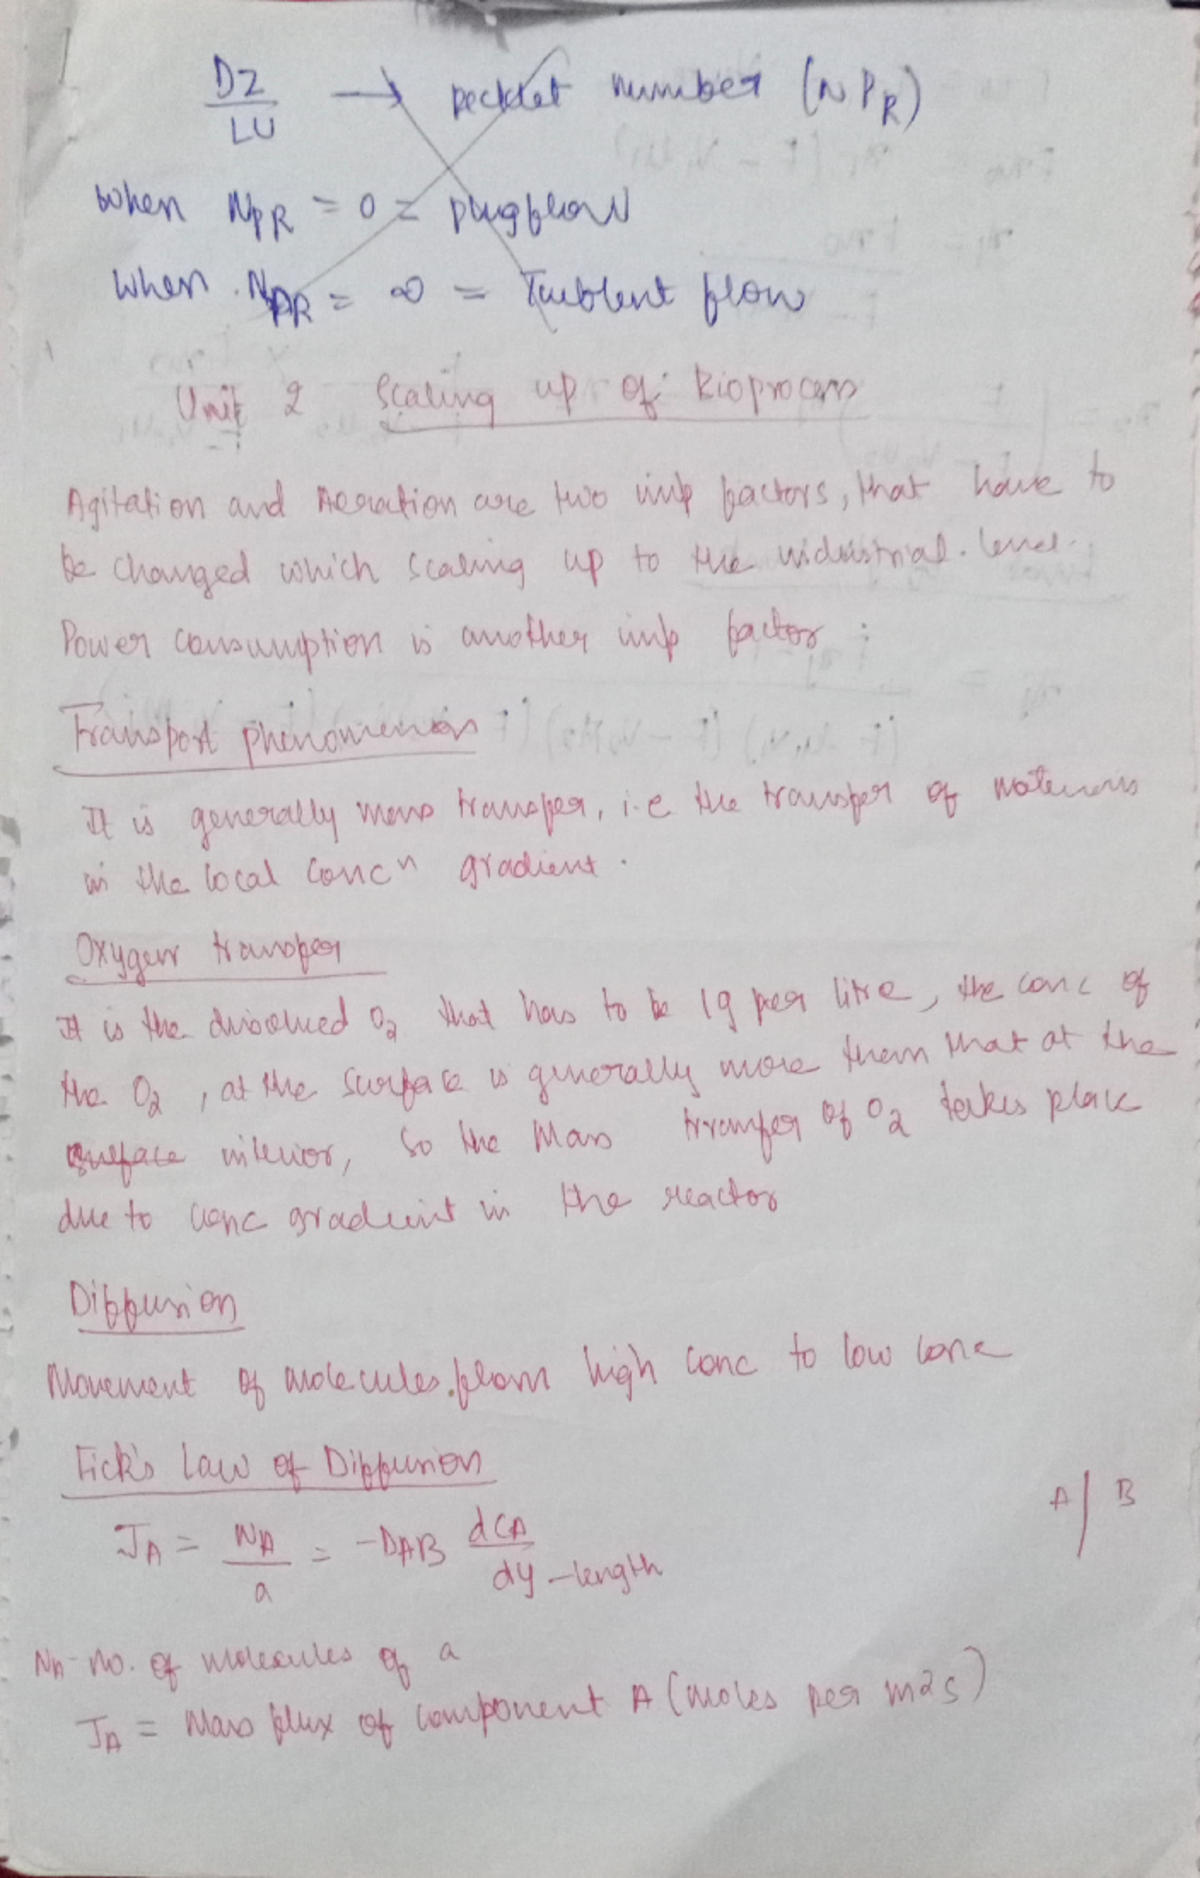 DZ/LU → pecklet number (N PR)
When NPR = 0 = plugflow
When NPR = ∞ = Turblent flow
Unit 2 Scaling up of Bioprocess
Agitation and Aeration are two imp factors, that have to
be changed which scaling up to the industrial level.
Power consumption is another imp factor
Transport phenomenon
It is generally mass transfer, i.e the transfer of materials
in the local concn gradient.
Oxygen transfer
It is the dissolved O2 that has to be 1g per litre, the conc of
the O2, at the surface is generally more them that at the
surface interior, so the mass transfer of O2 takes place
due to conc gradient in the reactor
Diffusion
Movement of molecules from high conc to low conc
Fick's Law of Diffusion
A | B
JA = NA/a = -DAB dCA/dy - length
NA- No. of molecules of a
JA = Mass flux of component A (moles per m2s)